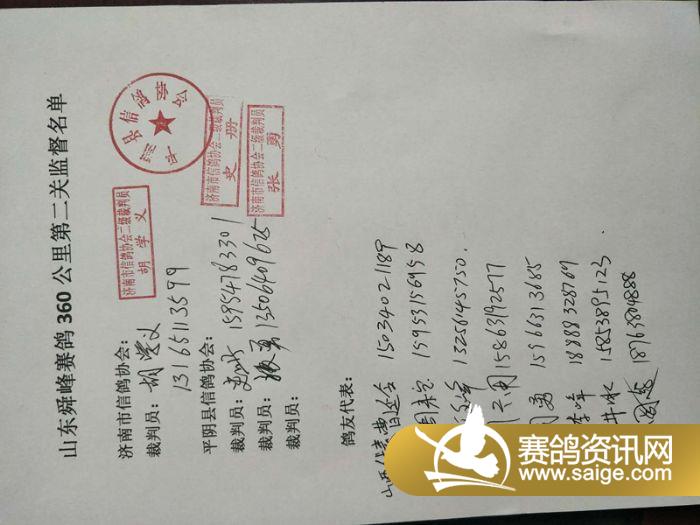 山东舜峰赛鸽360公里第二关监督名单
济南市信鸽协会:
裁判员: 胡学义
13165113599
济南市信鸽协会二级裁判员
胡学义
平阴县信鸽协会:
裁判员: 史册 15954783301
裁判员: 张勇 13506409625
裁判员:
济南市信鸽协会二级裁判员
史册
济南市信鸽协会二级裁判员
张勇
鸽友代表:
15034021189
15953156958
13256145750.
15863192577
勇 15966313685
李峰 18888328769
井水 15853895123
18763804888
赛鸽资讯网
www.saige.com